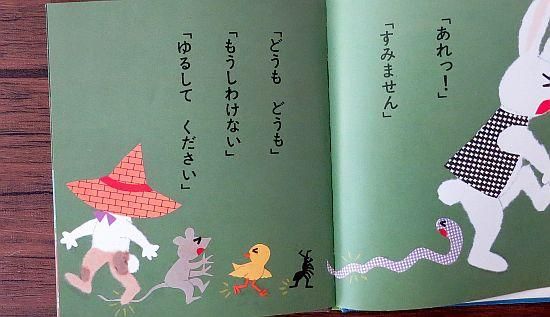 「あれっ！」
「すみません」
「どうも　どうも」
「もうしわけない」
「ゆるして　ください」